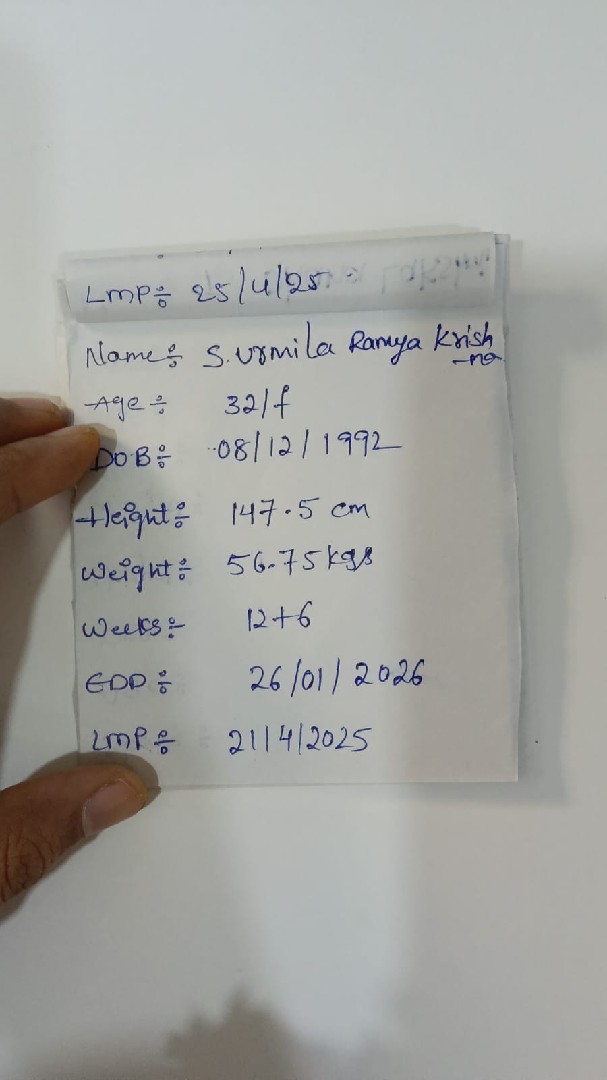 LMP÷ 25/4/25
Name÷ S.urmila Ramya Krish
-na
Age÷ 32/f
DOB÷ 08/12/1992
Height÷ 147.5 cm
Weight÷ 56.75 kgs
Weeks÷ 12+6
EDD÷ 26/01/2026
LMP÷ 21/4/2025